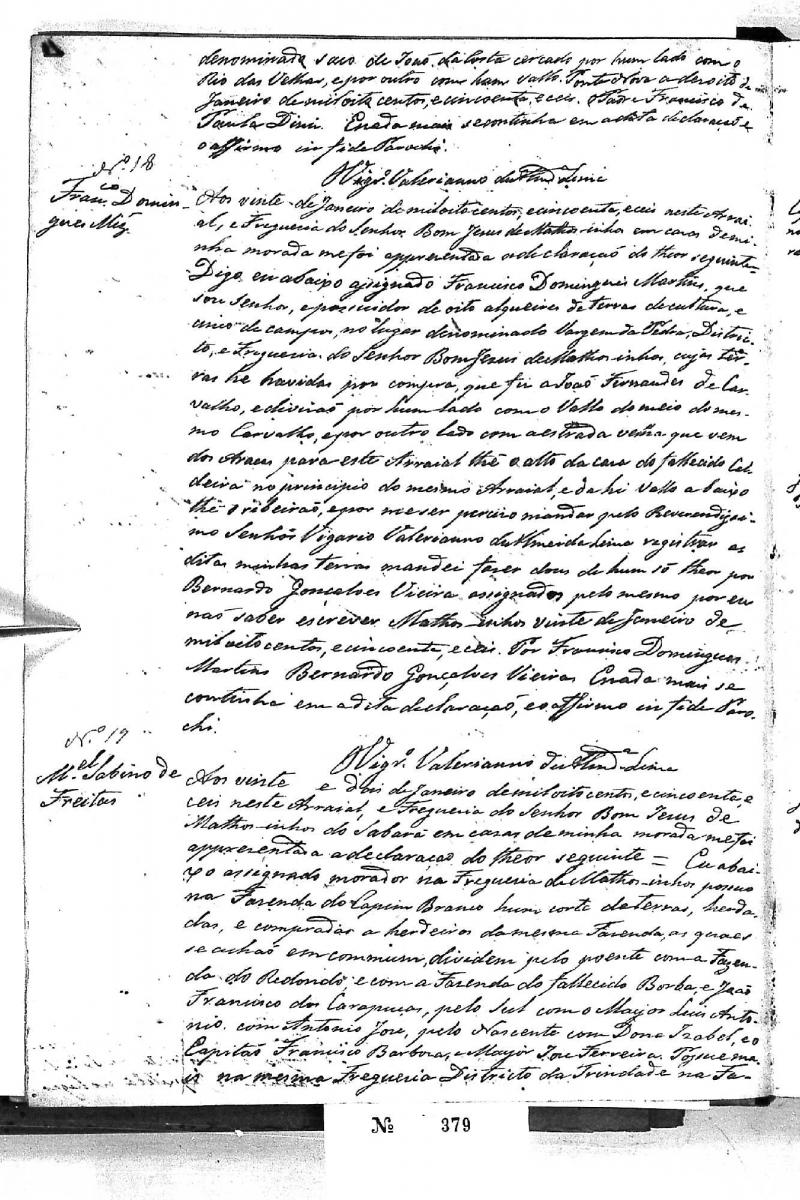 denominada saco de João da Costa cercado por hum lado com o
Rio das Velhas, e por outro com hum vallo. Ponte Nova a desoito de
Janeiro de mil oito centos, e cincoenta, e ceis. O Padre Francisco de
Paula Dinis. E nada mais se continha em a dita declaração e
o affirmo in fide Parochi.
O Vigr.º Valerianno de Almd.ª Lima
N.º 18
Fran.co Domin
gues Miz
Aos vinte de Janeiro de mil oito centos, e cincoenta, e ceis neste Arrai
al, e Freguesia do Senhor Bom Jesus de Mathosinhos em casas de mi
nha morada me foi appresentada a declaração do theor seguinte
Digo eu abaixo assignado Francisco Domingues Martins, que
sou Senhor, e possuidor de oito alqueires de terras de cultura, e
cinco de campos, no lugar denominado Vargem da Pedra, Distric
to, e Freguesia do Senhor Bom Jesus de Mathosinhos, cujas ter
ras he havidas por compra, que fis a João Fernandes de Car
valho, e divisão por hum lado com o Vallo do meio do mes
mo Carvalho, e por outro lado com a estrada velha que vem
dos Araeas para este Arraial thé o alto da casa do fallecido Cal
deira no principio do mesmo Arraial, e dahi vallo abaixo
thé o ribeirão, e por me ser preciso mandar pelo Reverendissi
mo Senhor Vigario Valerianno de Almeida Lima registrar as
ditas minhas terras mandei faser dous de hum só theor por
Bernardo Gonçalves Vieira assignados pelo mesmo por eu
não saber escrever Mathosinhos vinte de Janeiro de
mil oito centos, e cincoenta, e ceis. Por Francisco Domingues
Martins Bernardo Gonçalves Vieira E nada mais se
continha em a dita declaração, e o affirmo in fide Paro
chi.
O Vigr.º Valerianno de Almd.ª Lima
N.º 19
M.el Sabino de
Freitas
Aos vinte e dois de Janeiro de mil oito centos, e cincoenta, e
ceis neste Arraial, e Freguesia do Senhor Bom Jesus de
Mathosinhos do Sabará em casas de minha morada me foi
appresentada a declaração do theor seguinte = Eu abai
xo assignado morador na Freguesia de Mathosinhos possuo
na Fazenda do Capim Branco hum corte de terras, herda
das, e compradas a herdeiros da mesma Fazenda, as quaes
se achão em commum, dividem pelo poente com a Fazen
da do Redondo, e com a Fazenda do fallecido Borba, e João
Francisco dos Carapuças, pelo Sul com o Major Luis Anto
nio com Antonio Jose, pelo Nascente com Dona Izabel, e o
Capitão Francisco Barbosa, e Major Jose Ferreira. Possue ma
is na mesma Freguesia Districto da Trindade na Fa-
Nº 379